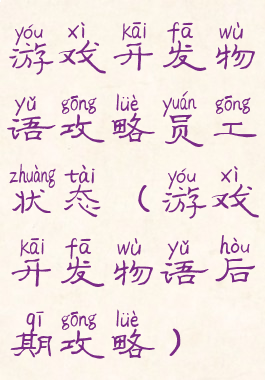 yóu xì kāi fā wù
游戏开发物
yǔ gōng lüè yuán gōng
语攻略员工
zhuàng tài yóu xì
状态（游戏
kāi fā wù yǔ hòu
开发物语后
qī gōng lüè
期攻略）